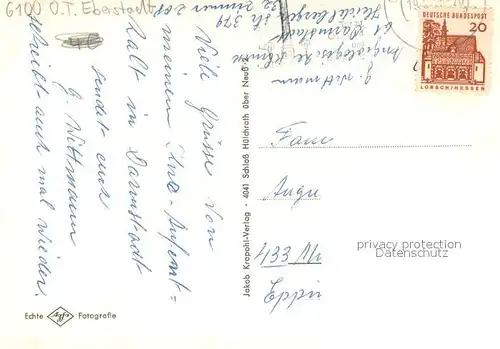 6100 O.T. Eberstadt
Heidelberger Str 379
61 Darmstadt
g. Wittmann
Viele Grüsse von
meinem Kur-Aufent=
halt in Darmstadt
sendet euch
g. Wittmann
schreibt auch mal wieder.
Echte Fotografie
Jakob Krapohl-Verlag - 4041 Schloß Hülchrath über Neuß 2
DEUTSCHE BUNDESPOST
20
LORSCH/HESSEN
Fam
433 Mh
privacy protection
Datenschutz